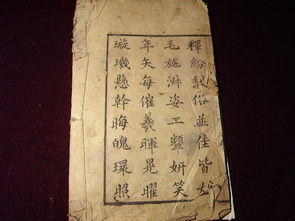 釋紛利俗並佳皆妙
毛施淑姿工顰妍笑
年矢每催羲暉晃曜
璇璣懸幹晦魄環照